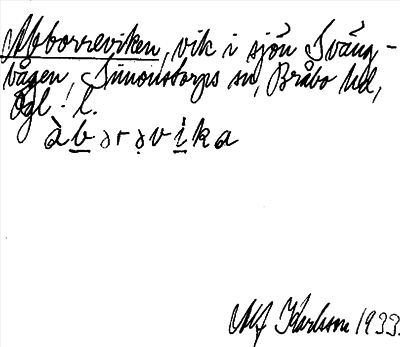 Abborreviken, vik i sjön Sväng-
bågen, Simonstorps sn, Bråbo hd,
Ögl. l.
àb̲ərəvi̲ka
Alf Karlsson 1933.